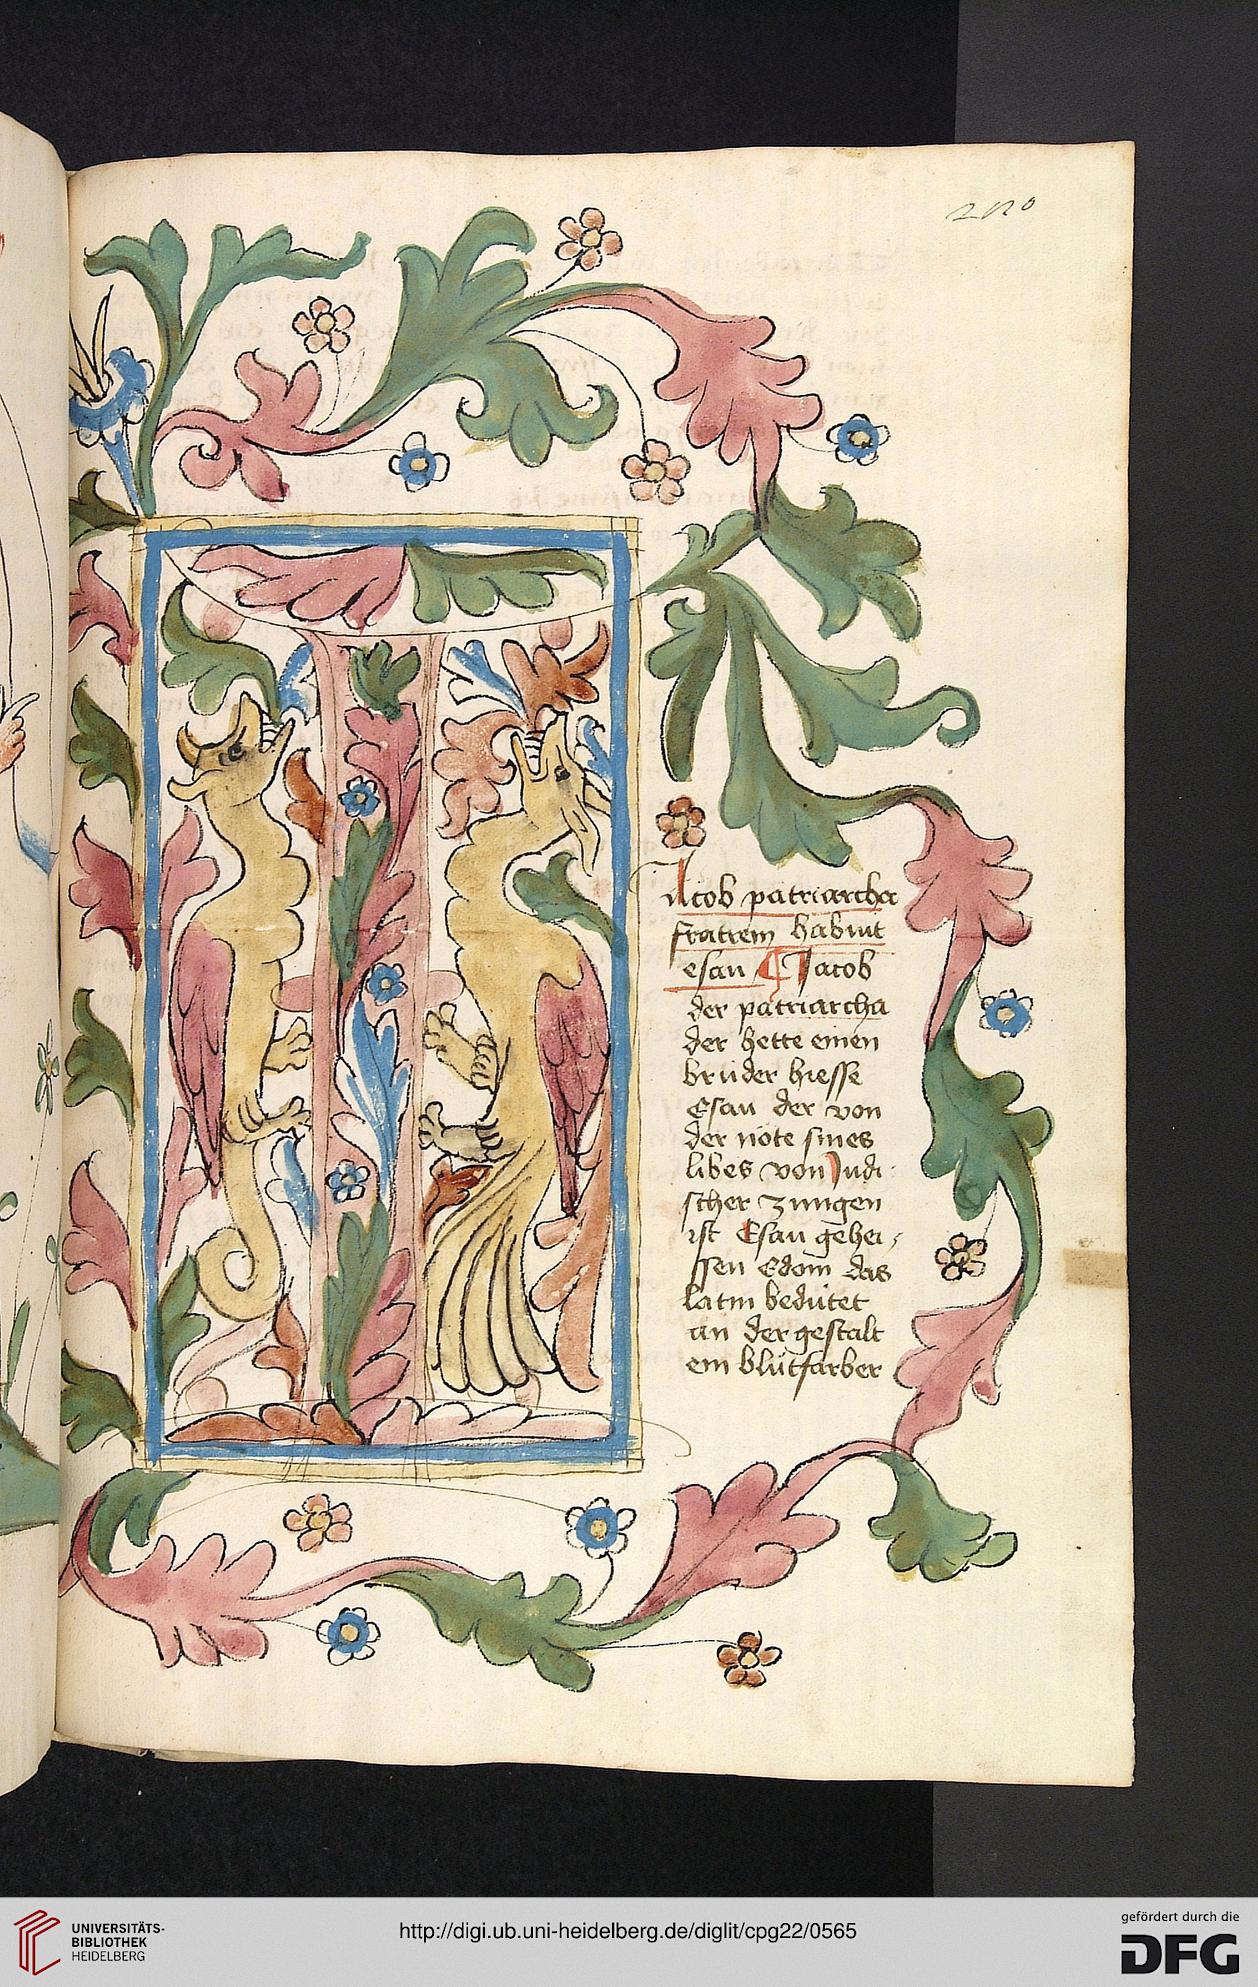 Iacob patriarcha
fratrem habuit
esau ¶ Jacob
der patriarcha
der hette einen
brüder hiesse
Esau der von
der nöte sines
libes von Judi
scher zungen
ist Esau gehei-
ssen Edom das
latin bedütet
an der gestalt
ein blütfarber
UNIVERSITÄTS-
BIBLIOTHEK
HEIDELBERG
http://digi.ub.uni-heidelberg.de/diglit/cpg22/0565
gefördert durch die
DFG